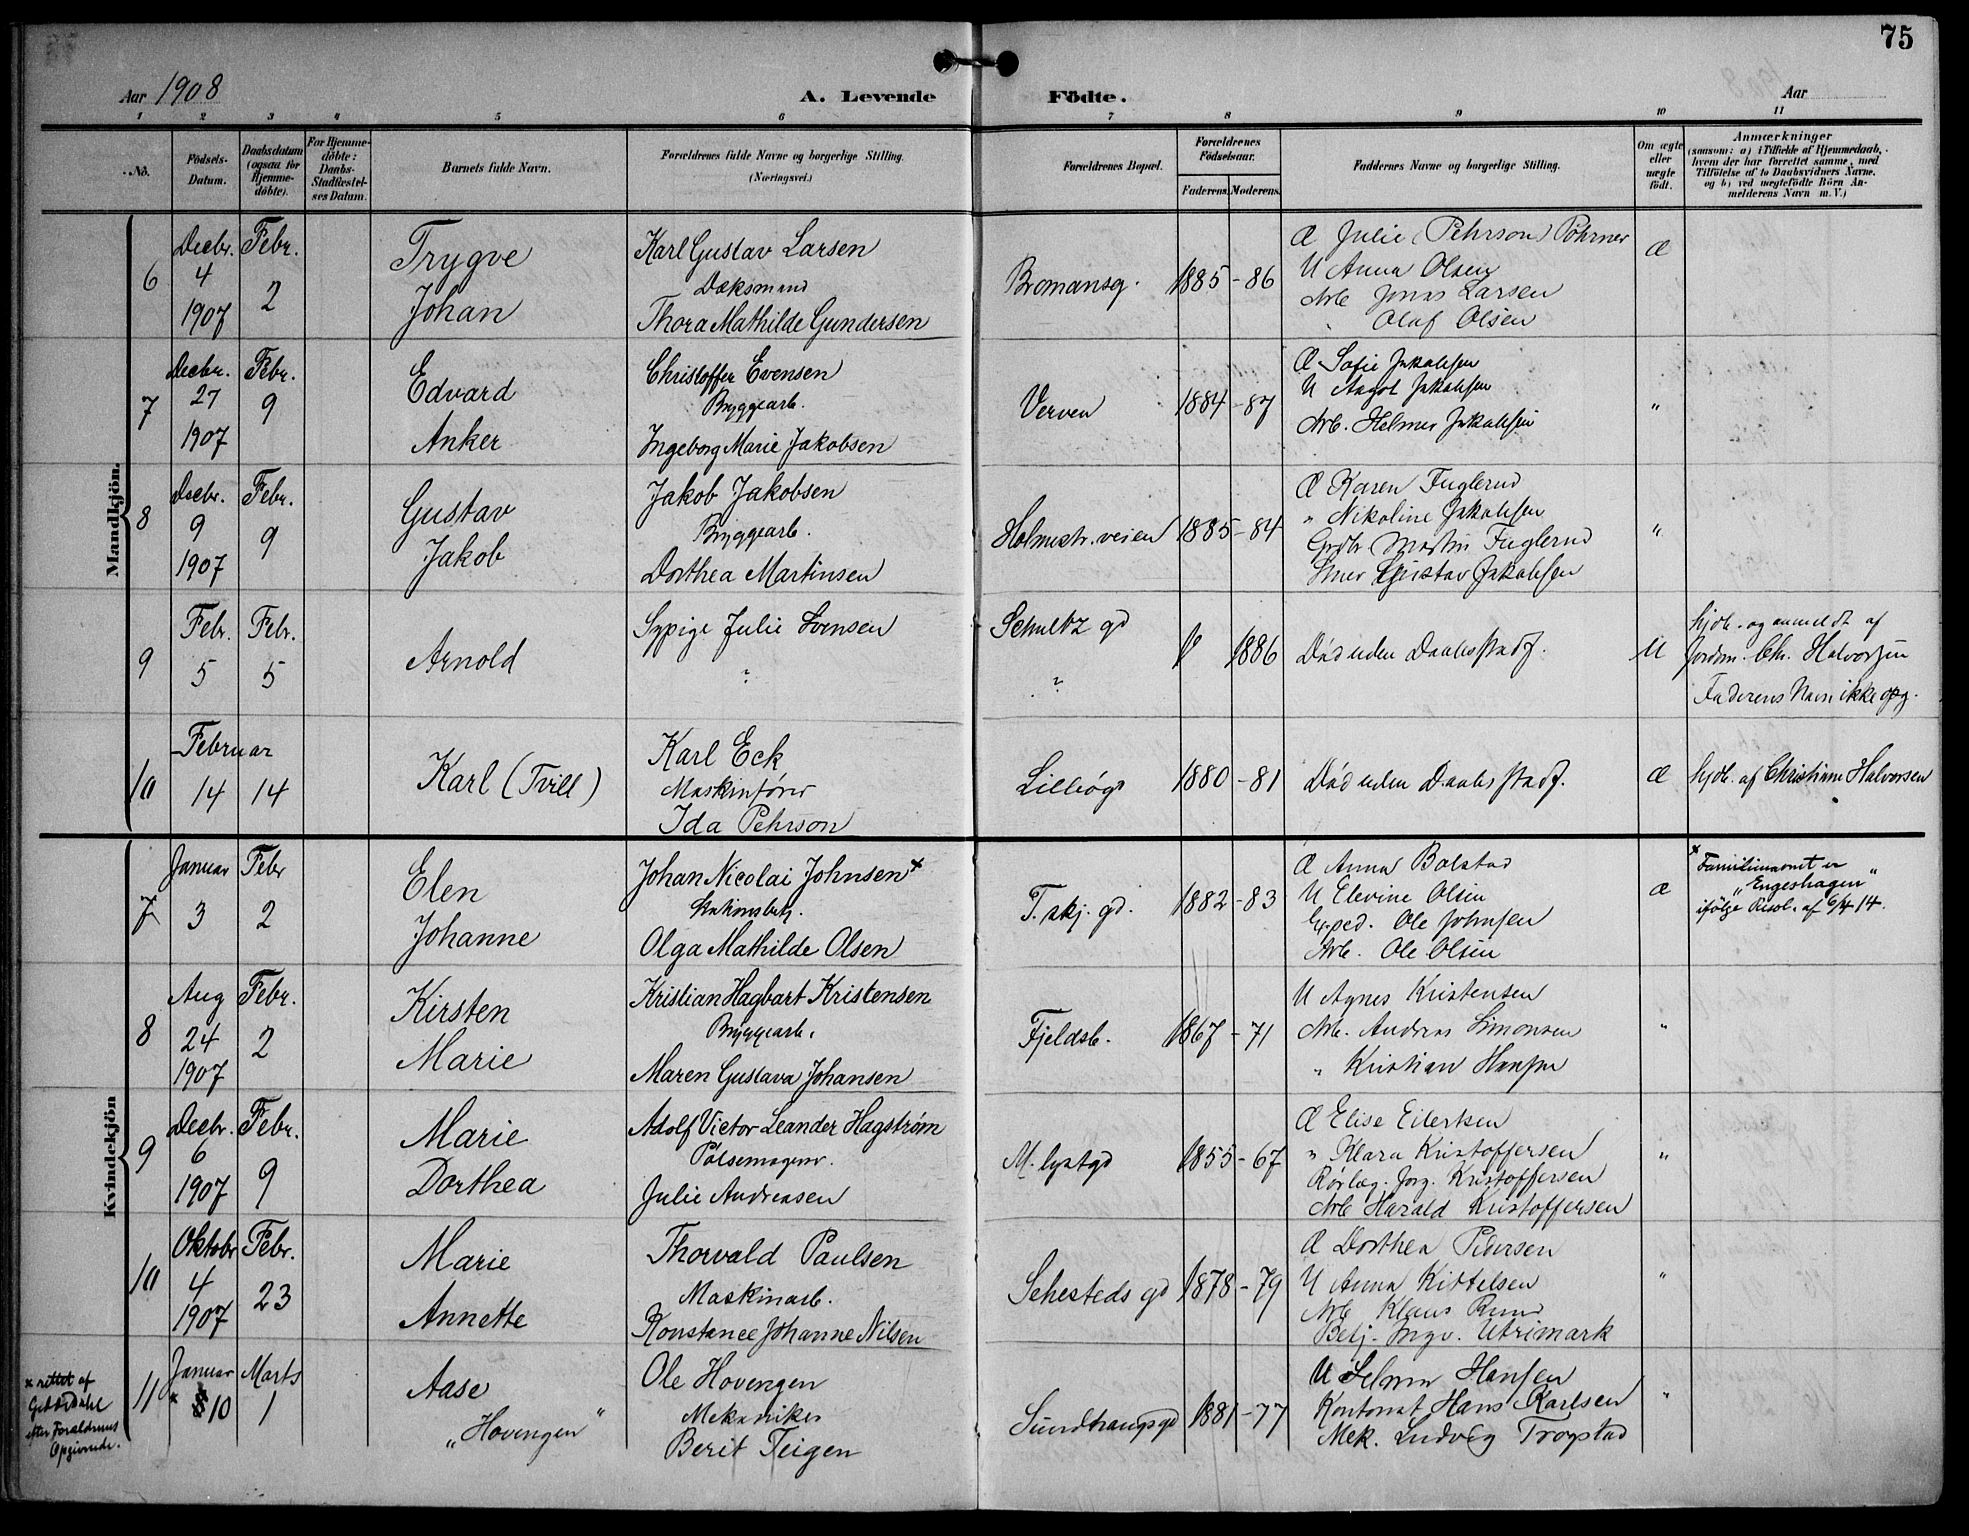 75
Aar 1908
A. Levende Födte.
Aar
1 2 3 4 5 6 7 8 9 10 11
No.
Födsels-Datum.
Daabsdatum (ogsaa for Hjemmedöbte).
For Hjemmedöbte: Daabs-Stadfæstelses Datum.
Barnets fulde Navn.
Forældrenes fulde Navne og borgerlige Stilling. (Næringsvei.)
Forældrenes Bopæl.
Forældrenes Födselsaar.
Faderens. Moderens.
Faddernes Navne og borgerlige Stilling.
Om ægte eller uægte födt.
Anmærkninger
(saasom: a) i Tilfælde af Hjemmedaab, hvem der har forrettet samme, med Tilföielse af to Daabsvidners Navne, og b) ved uægtefödte Börn Anmelderens Navn m. V.)
Mandkjön.
6
Decbr. 4 1907
Febr. 2
Trygve Johan
Karl Gustav Larsen
Dæksmand
Thora Mathilde Gundersen
Bromansg.
1885 - 86
Æ Julie (Pehrson) Pöhrner
U Anna Olsen
Arb Jonas Larsen
" Olaf Olsen
Æ
7
Decbr. 27 1907
Febr. 9
Edvard Anker
Christoffer Evensen
Bryggearb.
Ingeborg Marie Jakobsen
Verven
1884 - 87
Æ Sofie Jakobsen
U Aagot Jakobsen
Arb. Helmer Jakobsen
"
8
Decbr. 9 1907
Febr. 9
Gustav Jakob
Jakob Jakobsen
Bryggearb.
Dorthea Martinsen
Holmestr. veien
1885 - 84
Æ Karen Fuglerud
" Nikoline Jakobsen
Grdb Martin Fuglerud
Gustav Jakobsen
"
9
Febr. 5
Febr. 5
Arnold
Sypige Julie Svensen
?
Schultz gd
?
1886
Död uden Daabsstadf.
U
hjdb. og anmeldt af
Jordm. Chr. Halvorsen
Faderens Navn ikke opg.
10
Februar
14 14
Karl (Tvill)
Karl Eck
Maskinförer
Ida Pehrson
1880 - 81
Död uden Daabsstadf.
Æ
hjdb. af Christiane Halvorsen
Kvindekjön
7
Januar 3
Febr 2
Elen Johanne
Johan Nicolai Johnsen x
Stationsbetj.
Olga Mathilde Olsen
T. skj. gd.
1882 - 83
Æ Anna Bolstad
U Elevine Olsen
Exped. Ole Johnsen
Arb. Ole Olsen
Æ
x Familienavnet er
"Engeshagen"
ifölge Resol. af 6/4 14.
8
Aug 24 1907
Febr. 2
Kirsten Marie
Kristian Hagbart Kristensen
Bryggearb.
Maren Gustava Johansen
Fjeldsb.
1867 - 71
U Agnes Kristensen
Arb. Andreas Simonsen
" Kristian Hansen
"
9
Decbr. 6 1907
Febr. 9
Marie Dorthea
Adolf Victor Leander Hagström
Pölsemager.
Julie Andreasen
M. lystgd
1855 - 67
Æ Elise Eilertsen
" Klara Kristoffersen
Rörlæg. Jörg. Kristoffersen
Arb Harald Kristoffersen
"
10
Oktobr 4 1907
Febr. 23
Marie Annette
Thorvald Paulsen
Maskinarb.
Konstance Johanne Nilsen
Sehesteds gd
1878 - 79
Æ Dorthea Pedersen
U Anna Kittelsen
Arb Klaus Ruud
Betj. Ingv. Utrimark
"
x rettet af
efter Forældrenes
Opgivende.
11
Januar
x 10
Marts 1
Aase
"Hovengen"
Ole Hovengen
Mekaniker
Berit Teigen
1881 - 77
U Selma Hansen
Kontorist Hans Karlsen
Mek. Ludvig Trogstad
"